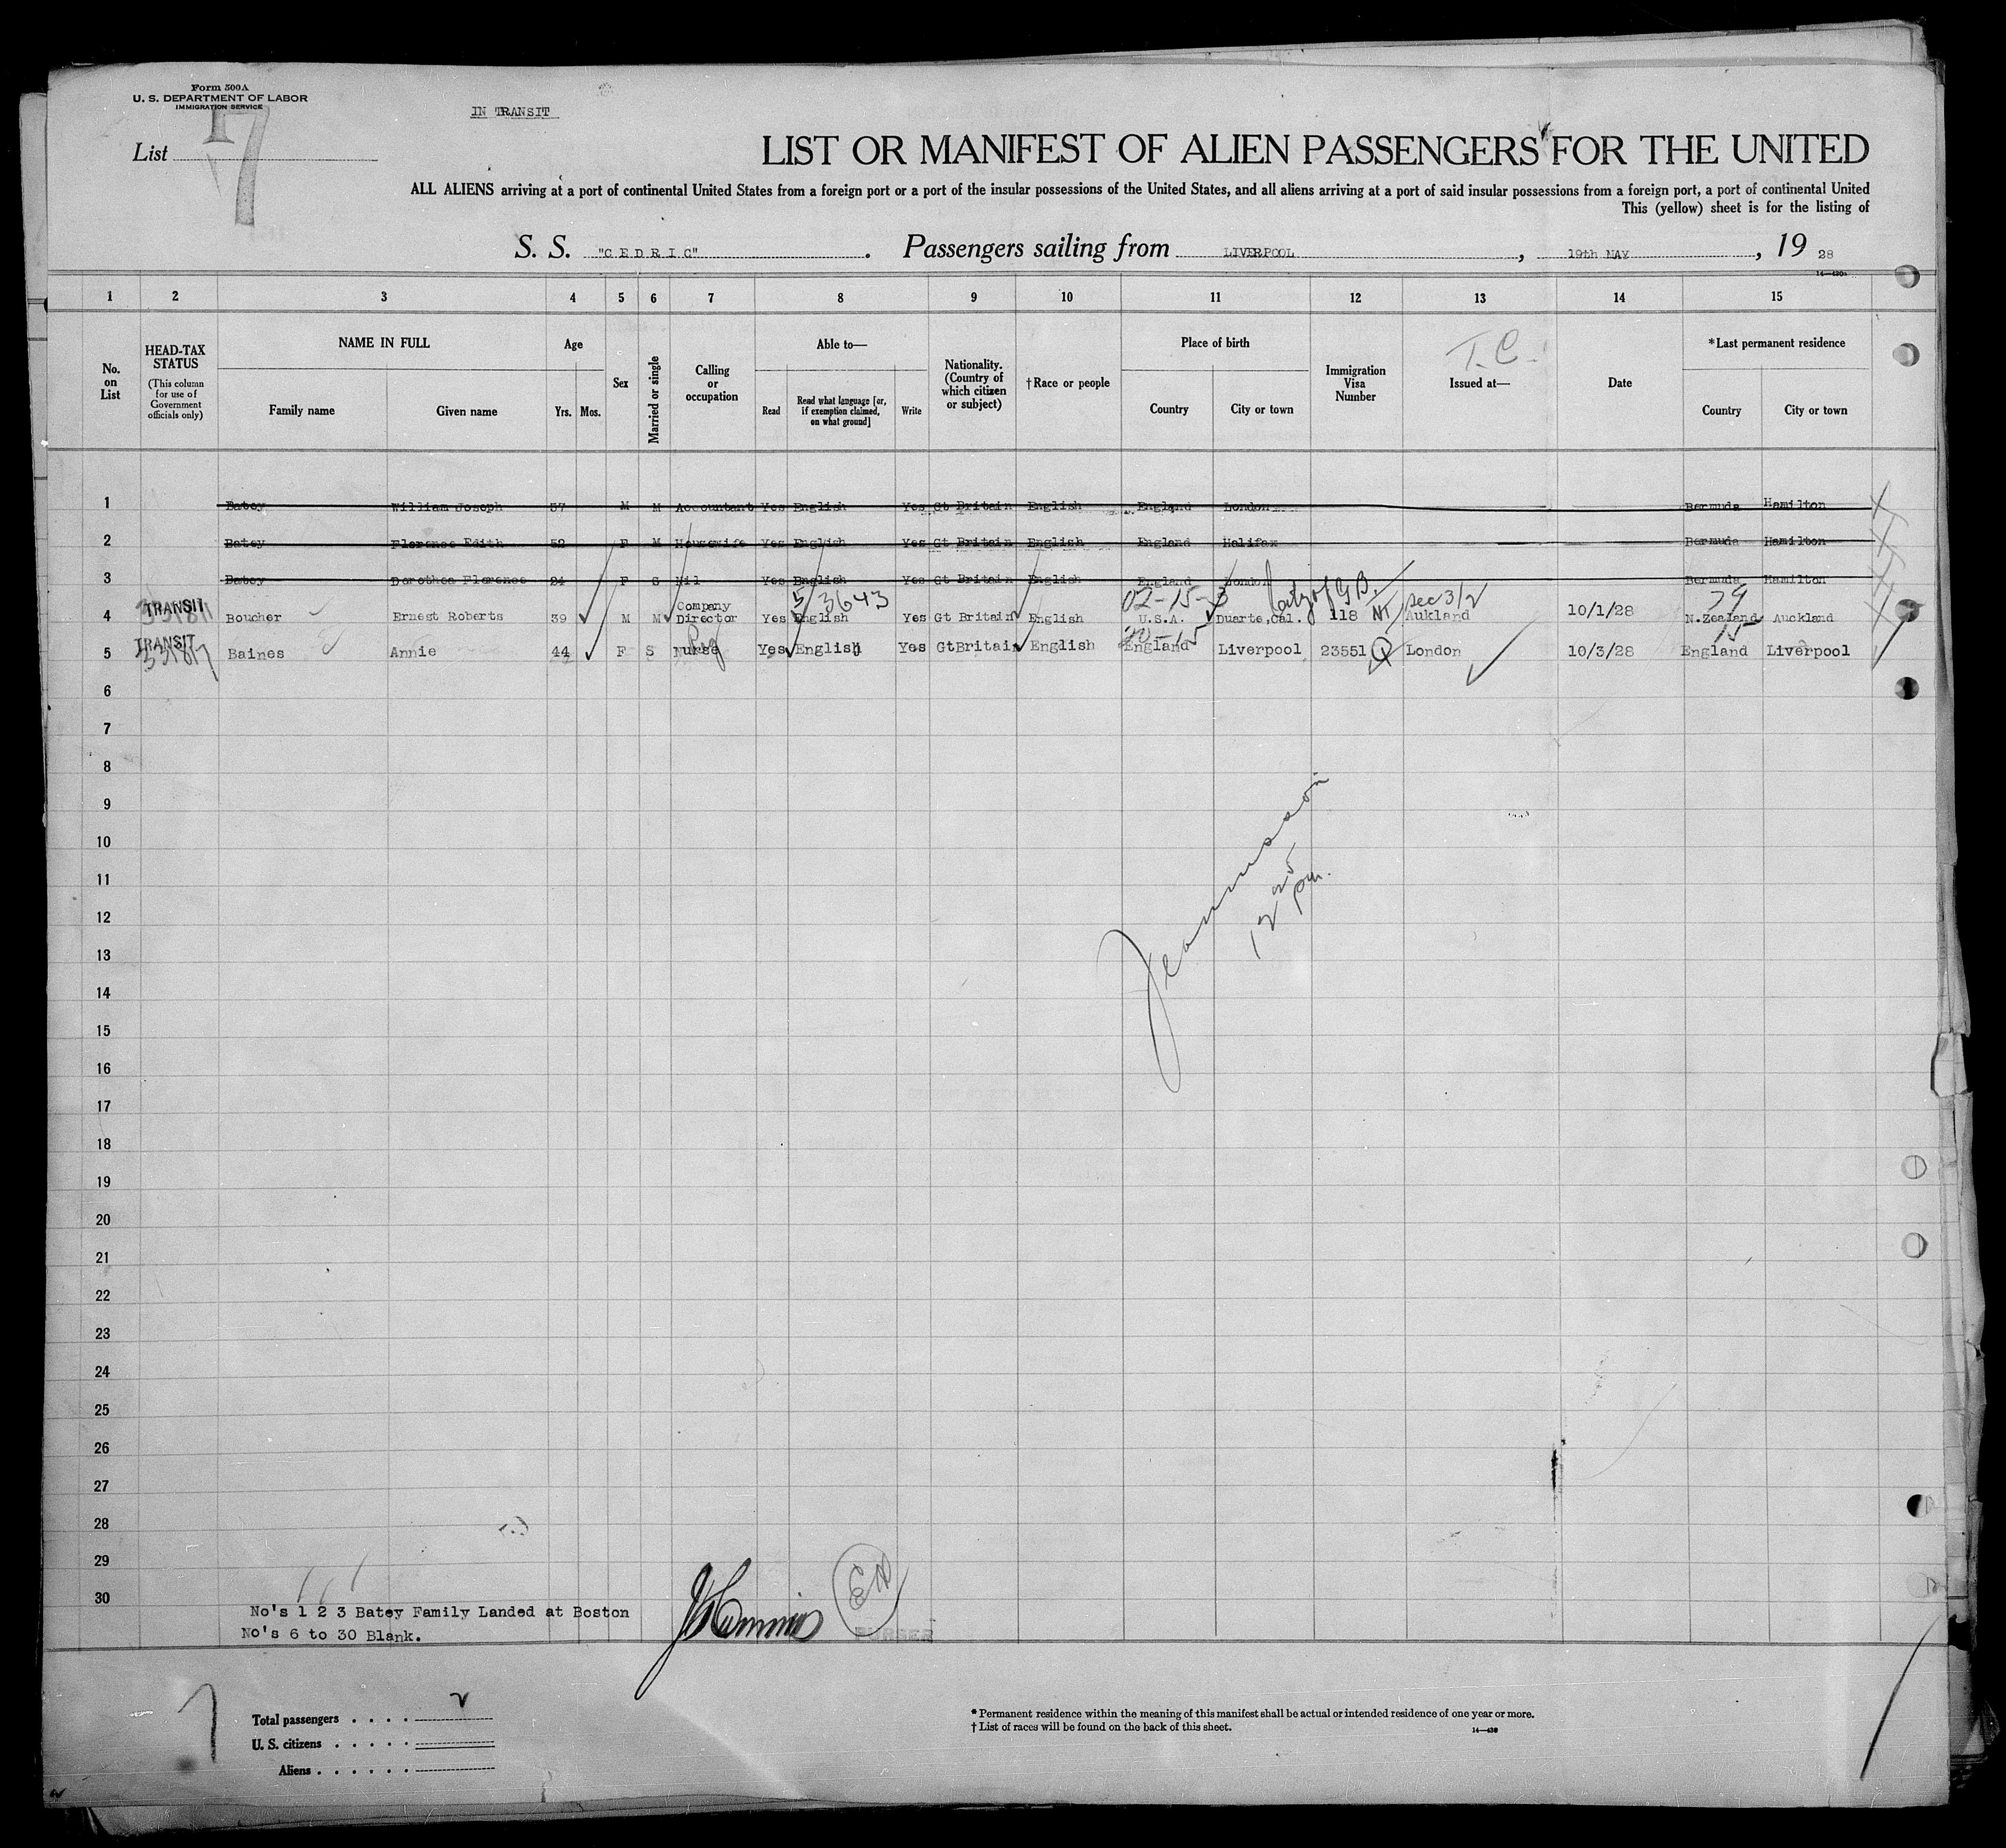 Form 500A
U. S. DEPARTMENT OF LABOR
IMMIGRATION SERVICE
IN TRANSIT
List 17
LIST OR MANIFEST OF ALIEN PASSENGERS FOR THE UNITED
ALL ALIENS arriving at a port of continental United States from a foreign port or a port of the insular possessions of the United States, and all aliens arriving at a port of said insular possessions from a foreign port, a port of continental United
This (yellow) sheet is for the listing of
S. S. "CEDRIC" . Passengers sailing from LIVERPOOL , 19th MAY , 19 28
1 2 3 4 5 6 7 8 9 10 11 12 13 14 15
No. on List
HEAD-TAX STATUS (This column for use of Government officials only)
NAME IN FULL
Family name Given name
Age
Yrs. Mos.
Sex
Married or single
Calling or occupation
Able to—
Read Read what language [or, if exemption claimed, on what ground] Write
Nationality. (Country of which citizen or subject)
†Race or people
Place of birth
Country City or town
Immigration Visa Number
T.C.
Issued at—
Date
*Last permanent residence
Country City or town
1 Batey William Joseph 57 M M Accountant Yes English Yes Gt Britain English England London Bermuda Hamilton
2 Batey Florence Edith 52 F M Housewife Yes English Yes Gt Britain English England Halifax Bermuda Hamilton
3 Batey Dorothea Florence 24 F S Nil Yes English Yes Gt Britain English England London Bermuda Hamilton
5/3643 02-15-3 of G.B. sec 3/2 79
4 TRANSIT Boucher Ernest Roberts 39 M M Company Director Yes English Yes Gt Britain English U.S.A. Duarte, Cal. 118 NT Aukland 10/1/28 N.Zealand Auckland
15
5 TRANSIT Baines Annie 44 F S Nurse Yes English Yes GtBritain English England Liverpool 23551 Q London 10/3/28 England Liverpool
6
7
8
9
10
11
12
13
14
15
16
17
18
19
20
21
22
23
24
25
26
27
28
29
30
12 25 pm.
No's 1 2 3 Batey Family Landed at Boston
No's 6 to 30 Blank.
PURSER
Total passengers . . . . 2
U. S. citizens . . . . .
Aliens . . . . . .
* Permanent residence within the meaning of this manifest shall be actual or intended residence of one year or more.
† List of races will be found on the back of this sheet.